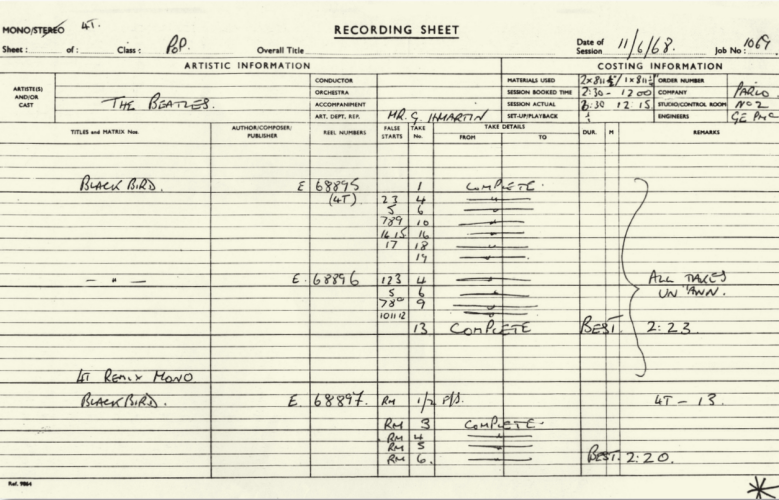 MONO/STEREO 4T. RECORDING SHEET
Sheet: of: Class: POP. Overall Title Date of Session 11/6/68. Job No: 1069
ARTISTIC INFORMATION COSTING INFORMATION
ARTISTE(S) AND/OR CAST THE BEATLES.
CONDUCTOR MATERIALS USED ORDER NUMBER
ORCHESTRA SESSION BOOKED TIME 2:30 - 12 00 COMPANY PARLO
ACCOMPANIMENT SESSION ACTUAL 6:30 12:15 STUDIO/CONTROL ROOM No 2
ART. DEPT. REP. MR. G. H MARTIN SET-UP/PLAYBACK ENGINEERS GE PMC
TITLES and MATRIX Nos. AUTHOR/COMPOSER/ PUBLISHER REEL NUMBERS FALSE STARTS TAKE No. TAKE DETAILS FROM TO DUR. M REMARKS
BLACKBIRD. E 68895 1 COMPLETE.
(4T) 2 3 4 "
5 6 "
7 8 9 10 "
14 15 16 "
17 18 "
19 "
— " — E. 68896 1 2 3 4 " ALL TAKES
5 6 " UN'ANN.
7 8 9 "
10 11 12 "
13 COMPLETE BEST. 2:23.
4T REMIX MONO
BLACKBIRD. E. 68897. RM 1/2 F/S. 4T - 13.
RM 3 COMPLETE.
RM 4 "
RM 5 "
RM 6. " BEST. 2:20.
Ref. 9864